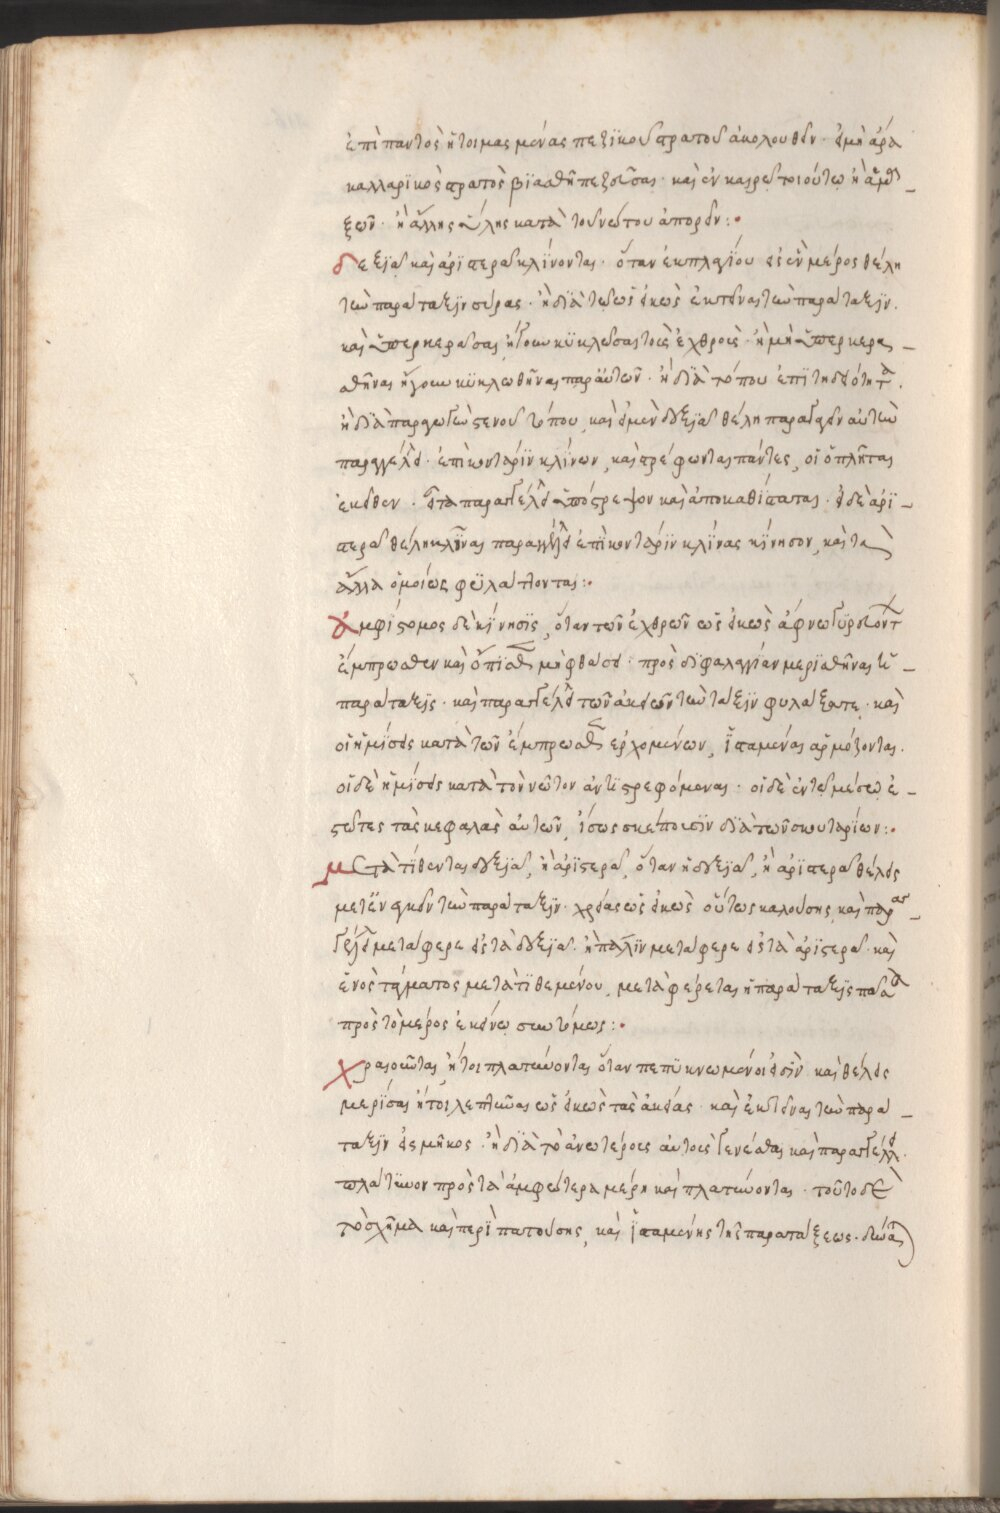 ἐπὶ παντὸς ἤτοιμας μόνας πεζϊκοῦ στρατοῦ ἀκολουθεῖν· εἰ μὴ ἄρα
καλλαρϊκὸς στρατὸς βϊασθῆ πεζεῦσαι· καὶ ἐν καιρῶ τοιούτω ἢ ἀμα
ξῶν· ἢ ἄλλης ὕλης κατὰ τοῦ νώτου ἀπορεῖν :·
δεξϊὰ καὶ ἀρϊστερὰ κλΐνονται· ὅταν ἐκ πλαγΐου εἰς ἓν μέρος θέλη
τὴν παράταξϊν σύρας· ἢ διὰ τὸ ὡς εἰκὸς ἐκτεῖναι τὴν παράταξϊν.
καὶ ὑπερκερᾶσαι ἤγουν κϋκλεῦσαι τοὺς ἐχθρούς· ἢ μὴ ὑπερκερα
σθῆναι ἤγουν κϋκλωθῆναι παρ' αὐτῶν· ἢ δϊὰ τόπου ἐπϊτηδειότητα.
ἢ δϊὰ παραγωγὴν στενοῦ τόπου, καὶ εἰ μὲν δεξϊὰ θέλη παράγειν αὐτὴν
παραγγέλλει· ἐπὶ κοντάρϊν κλΐνων, καὶ στρέφωνται πάντες, οἱ ὁπλῖται
ἐκεῖθεν· εἶτα παραγγέλλει ὑπόστρεψον καὶ ἀποκαθίσταται· εἰ δὲ ἀρϊ
στερὰ θέλη κλῖναι παραγγέλλει ἐπὶ κοντάρϊν κλῖναι κΐνησον, καὶ τὰ
ἄλλα ὁμοίως φϋλάττονται :·
ἀμφίστομος δὲ κΐνησϊς, ὅταν τῶν ἐχθρῶν ὡς εἰκὸς ἄφνω γϋρευόντων
ἔμπροσθεν καὶ ὄπϊσθεν μὴ φθάσει· πρὸς δϊφαλαγγίαν μερϊσθῆναι ἡ
παράταξϊς· καὶ παραγγέλλει τῶν ἀκϊῶν τὴν τάξϊν φυλάξατε· καὶ
οἱ ἡμΐσεις κατὰ τῶν ἔμπροσθεν ἐρχομένων, ἱσταμένας ἁρμόζονται.
οἱ δὲ ἡμΐσεις κατὰ τὸν νῶτον ἀντϊστρεφόμεναι· οἱ δὲ ἐν τῶ μέσω ἑ
στῶτες τὰς κεφαλὰς αὐτῶν, ἴσως σκέπουσϊν δϊὰ τῶν σκουταρίων :·
μετατίθενται δεξϊὰ, ἢ ἀρϊστερὰ, ὅταν ἢ δεξϊὰ, ἢ ἀρϊστερὰ θέλεις
μετενεγκεῖν τὴν παράταξϊν· χρείας ὡς εἰκὸς οὕτως καλούσης, καὶ παραγ
γέλλει μετάφερε εἰς τὰ δεξϊὰ· ἢ πάλϊν μετάφερε εἰς τὰ ἀρϊστερὰ· καὶ
ἑνὸς τάγματος μετατϊθεμένου, μεταφέρεται ἡ παράταξϊς πᾶσα
πρὸς τὸ μέρος ἐκεῖνο συντόμως :·
χρασοῦται ἤτοι πλατύνονται ὅταν πεπϋκνωμένοι εἰσΐν καὶ θέλεις
μερίσαι ἤτοι λεπτῦναι ὡς εἰκὸς τὰς ἀκΐας· καὶ ἐκτεῖναι τὴν παρά
ταξϊν εἰς μῆκος· ἢ δϊὰ τὸ ἀνωτέρους αὐτοὺς γενέσθαι καὶ παραγγέλλει.
πλάτϋνον πρὸς τὰ ἀμφώτερα μέρη καὶ πλατύνονται· τοῦτο δὲ
τὸ σχῆμα καὶ περϊπατούσης, καὶ ἱσταμένης τῆς παρατάξεως· δύνα